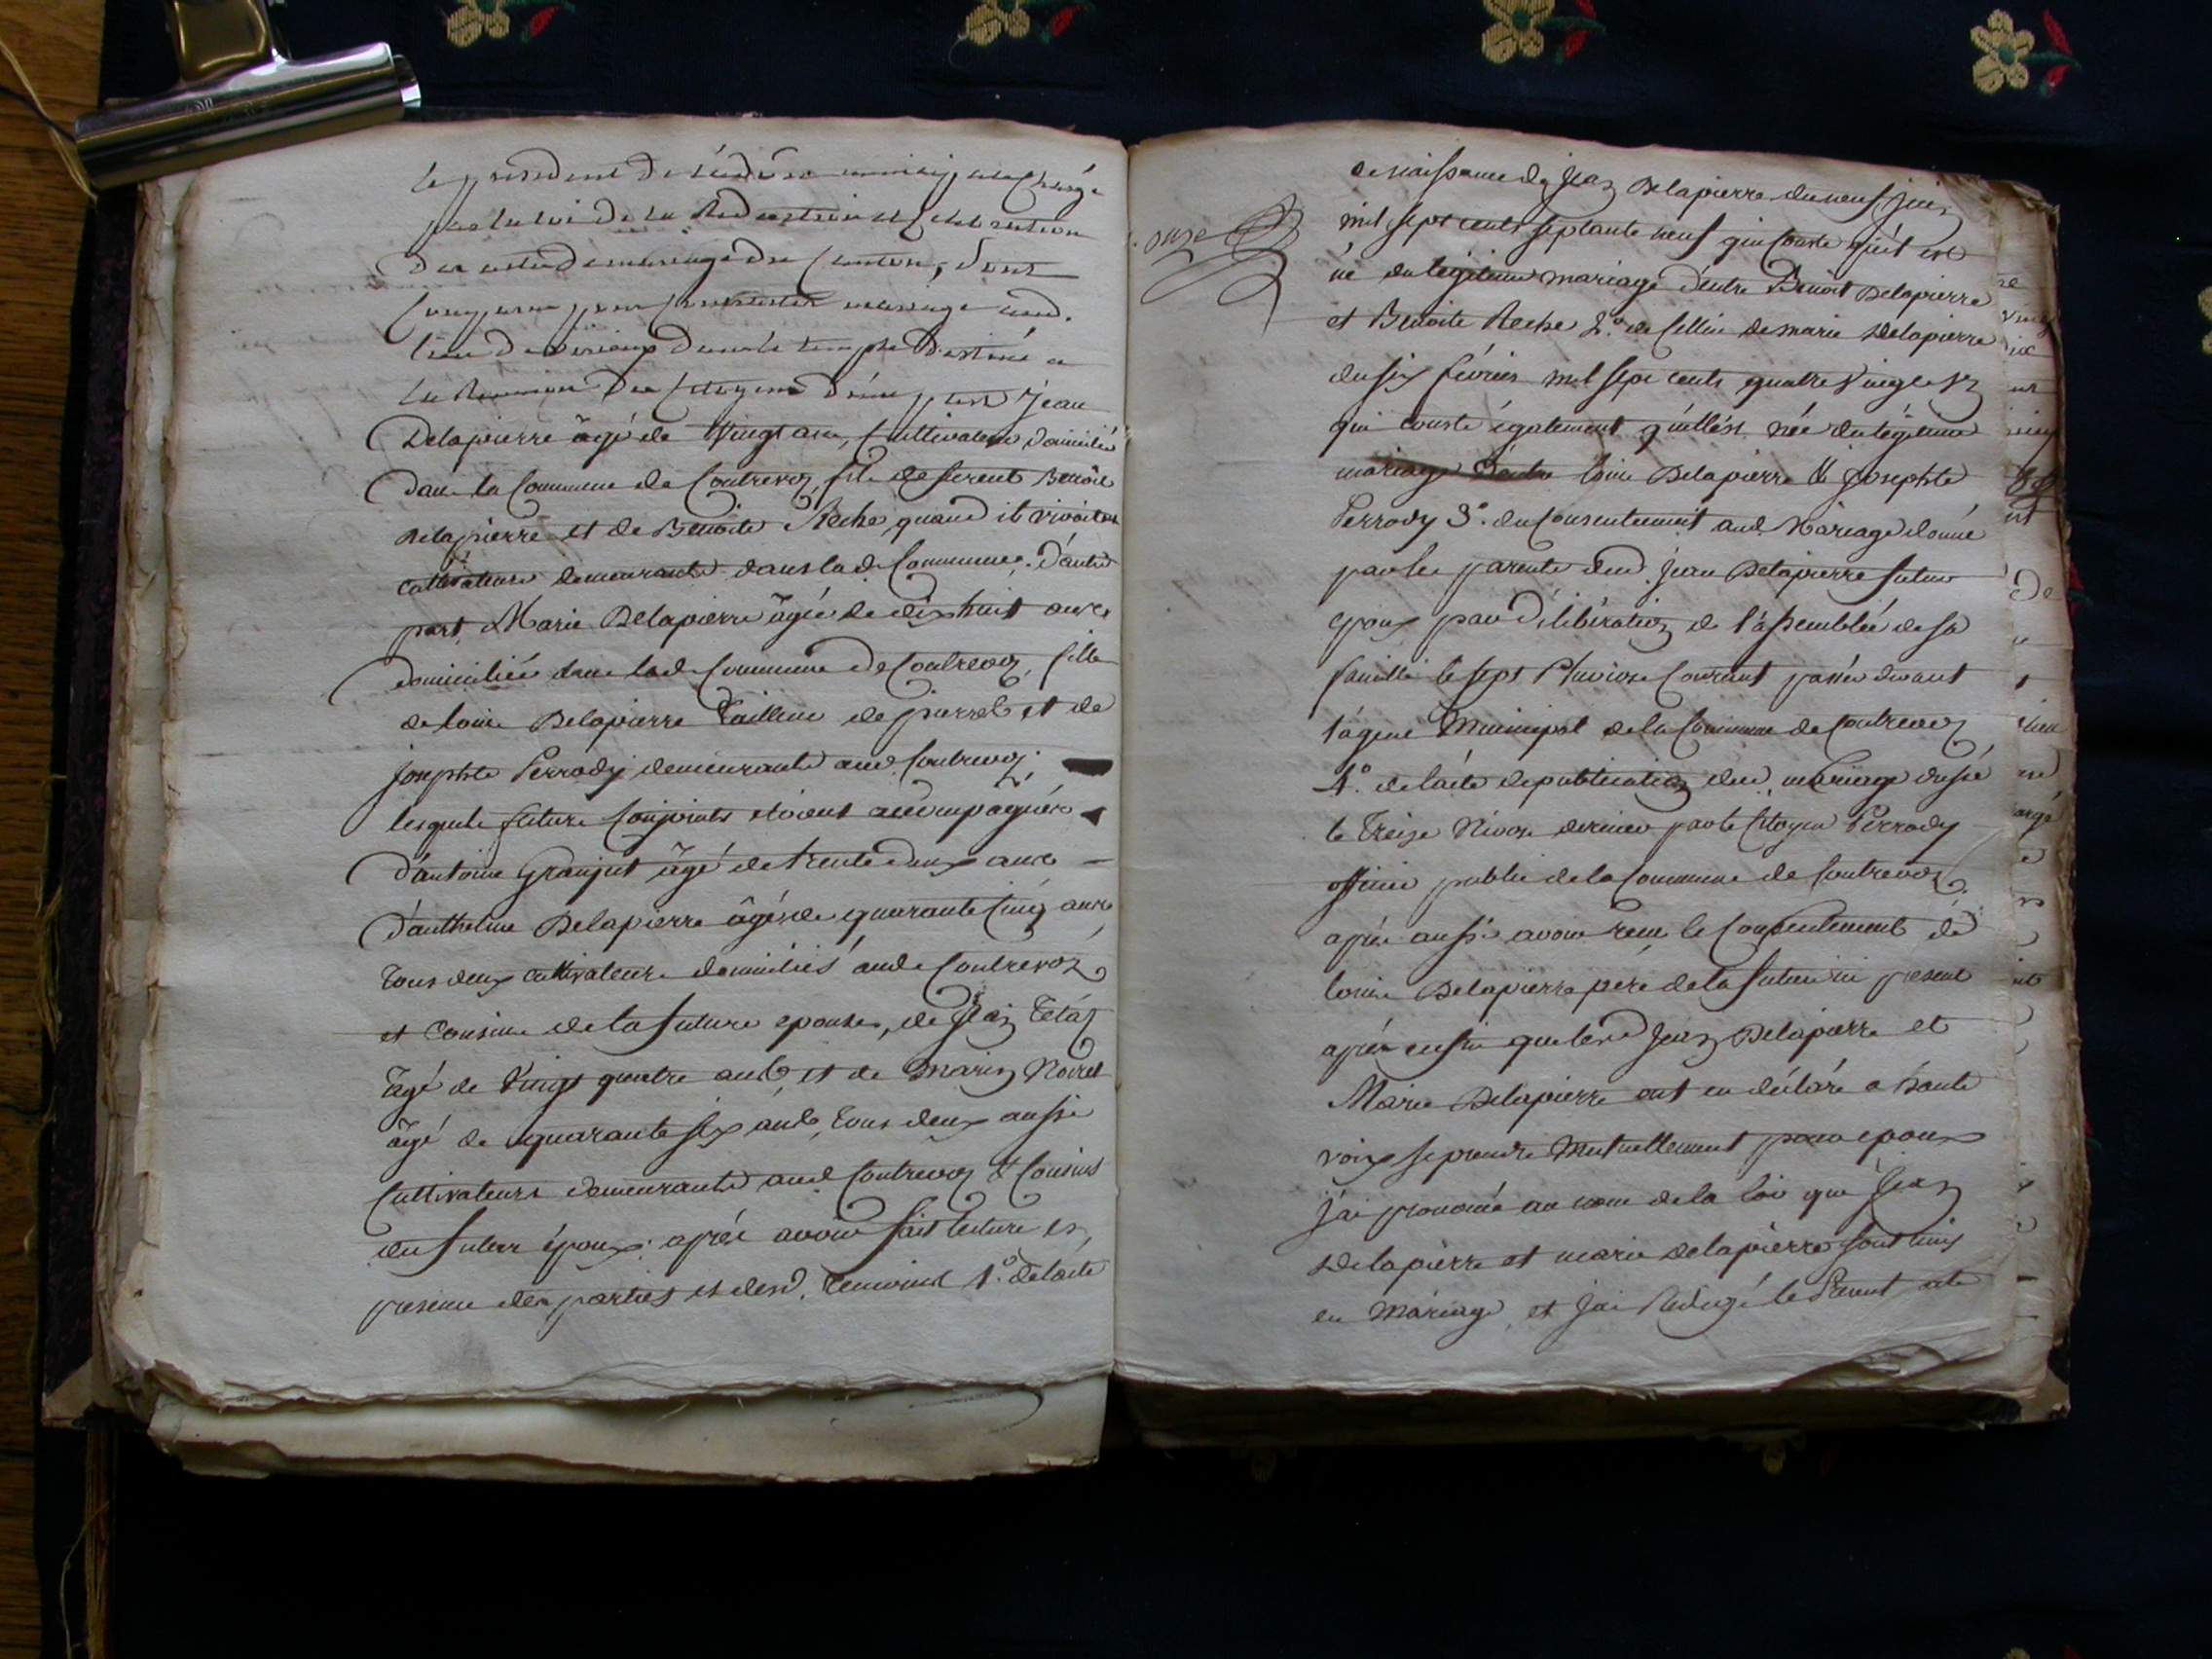 le president de l'adm.on municipale chargé
par la loi de la Redaction et Celebration
des actes de mariage du Canton, sont
Comparu pour Contracter mariage aud.
lieu de Virieux dans le temple destiné a
la Reunion des Citoyens d'une part Jean
Delapierre âgé de Vingt ans, Cultivateur domicilié
dans la Commune de Contrevoz, fils de furent Benoit
Delapierre et de Benoite Reche, quand ils vivoit
cultivateurs demeurants dans lad. Commune. d'autre
part Marie Delapierre âgée de dix huit ans
domiciliée dans lad. Commune de Contrevoz, fille
de Louis Delapierre Tailleur de pierres et de
Josephte Perrody demeurants aud. Contrevoz.
lesquels futurs Conjoints étoient accompagnés
d'antoine Granjut âgé de trente deux ans
d'anthelme Delapierre âgé de quarante Cinq ans
tous deux cultivateurs domiciliés aud. Contrevoz
et Cousins de la future epouse, de Jean Tétaz
âgé de Vingt quatre ans, et de Marin Noirel
âgé de quarante six ans, tous deux aussi
Cultivateurs demeurants aud. Contrevoz & Cousins
du futur époux. après avoir fait lecture en
presence des parties et desd. temoins 1.o de l'acte
onze
de naissance de Jean Delapierre du neuf juin
mil sept cents septante neuf qui conste qu'il est
né du légitime mariage d'entre Benoit Delapierre
et Benoite Reche 2.o de Cellui de marie Delapierre
du six février mil sept cents quatre Vingt un
qui conste également qu'elle est née du légitime
mariage d'entre Louis Delapierre & Josephte
Perrody 3.o du Consentement aud. Mariage donné
par les parents dud. Jean Delapierre futur
epoux par délibération de l'assemblée de sa
famille le sept Pluviose Courant passée devant
l'agent Municipal de la Commune de Contrevoz
4.o de l'acte de publication dud. mariage dressé
le Treize Nivose dernier par le Citoyen Perrody
officier public de la Commune de Contrevoz.
après aussi avoir recu le Consentement de
Louis Delapierre père de la future ici present
après enfin que lesd. Jean Delapierre et
Marie Delapierre ont eu déclaré a haute
voix se prendre Mutuellement pour epoux
j'ai prononcé au nom de la Loi que Jean
Delapierre et marie Delapierre sont unis
en Mariage, et j'ai Redigé le Present acte